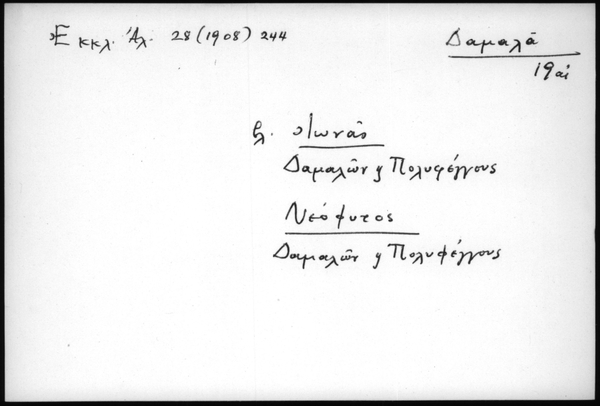 Ἐκκλ. Ἀλ. 28 (1908) 244
Δαμαλᾶ
19 αἰ
βλ. Ἰωνᾶς
Δαμαλῶν ϗ Πολυφέγγους
Νεόφυτος
Δαμαλῶν ϗ Πολυφέγγους